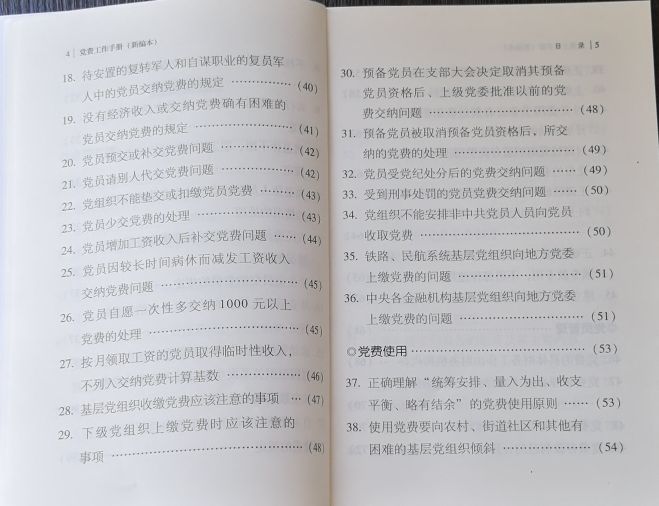 4 | 党费工作手册（新编本）
18. 待安置的复转军人和自谋职业的复员军
人中的党员交纳党费的规定 ……………（40）
19. 没有经济收入或交纳党费确有困难的
党员交纳党费的规定 ……………（41）
20. 党员预交或补交党费问题 ……………（42）
21. 党员请别人代交党费问题 ……………（42）
22. 党组织不能垫交或扣缴党员党费 ………（43）
23. 党员少交党费的处理 ……………（43）
24. 党员增加工资收入后补交党费问题 ……（44）
25. 党员因较长时间病休而减发工资收入
交纳党费问题 ……………（45）
26. 党员自愿一次性多交纳1000元以上
党费的处理 ……………（45）
27. 按月领取工资的党员取得临时性收入，
不列入交纳党费计算基数 ……………（46）
28. 基层党组织收缴党费应该注意的事项 …（47）
29. 下级党组织上缴党费时应该注意的
事项 ……………（48）
目 录 | 5
30. 预备党员在支部大会决定取消其预备
党员资格后、上级党委批准以前的党
费交纳问题 ……………（48）
31. 预备党员被取消预备党员资格后，所交
纳的党费的处理 ……………（49）
32. 党员受党纪处分后的党费交纳问题 ……（49）
33. 受到刑事处罚的党员党费交纳问题 ……（50）
34. 党组织不能安排非中共党员人员向党员
收取党费 ……………（50）
35. 铁路、民航系统基层党组织向地方党委
上缴党费的问题 ……………（51）
36. 中央各金融机构基层党组织向地方党委
上缴党费的问题 ……………（51）
◎党费使用 ……………（53）
37. 正确理解“统筹安排、量入为出、收支
平衡、略有结余”的党费使用原则 ……（53）
38. 使用党费要向农村、街道社区和其他有
困难的基层党组织倾斜 ……………（54）